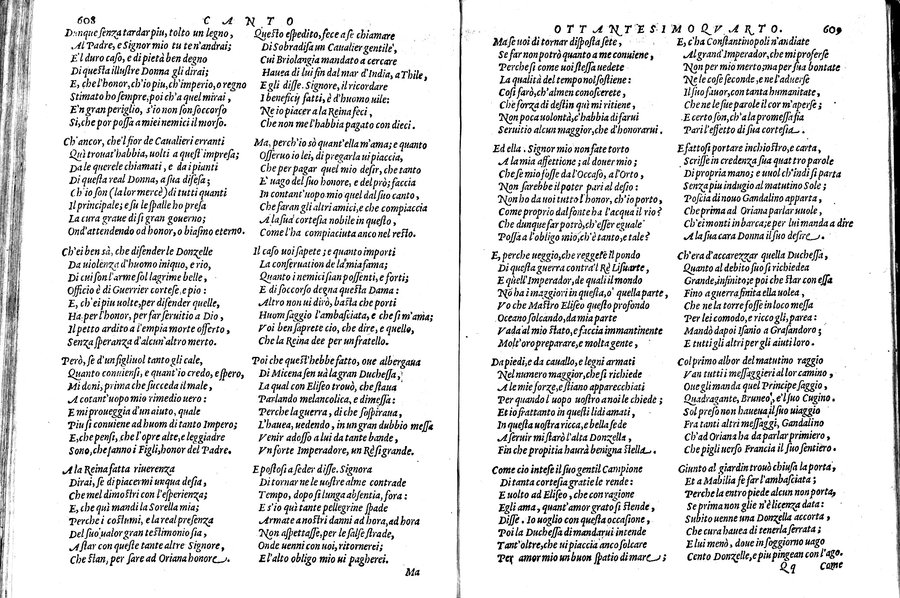 608 CANTO
Dunque senza tardar piu, tolto un legno,
Al Padre, e Signor mio tu te n'andrai;
E'l duro caso, e di pietà ben degno
Di questa illustre Donna gli dirai;
E, che l'honor, ch'io piu, ch'imperio, o regno
Stimato ho sempre, poi ch'a quel mirai,
E'n gran periglio, s'io non son soccorso
Si, che por possa a miei nemici il morso.
Ch'ancor, che'l fior de Caualieri erranti
Quì troua t'habbia, uolti a quest'impresa;
Da le querele chiamati, e da i pianti
Di questa real Donna, a sua difesa;
Ch'io son (la lor mercè) di tutti quanti
Il principale; e su le spalle ho presa
La cura graue di sì gran gouerno;
Ond'attendendo od honor, o biasimo eterno.
Ch'ei ben sà, che difender le Donzelle
Da uiolenza d'huomo iniquo, e rio,
Di cui son l'arme sol lagrime belle,
Officio è di Guerrier cortese, e pio:
E, ch'ei piu uolte, per difender quelle,
Ha per l'honor, per far seruitio a Dio,
Il petto ardito a l'empia morte offerto,
Senza speranza d'alcun'altro merto.
Però, se d'un figliuol tanto gli cale,
Quanto conuiensi, e quant'io credo, e spero,
Mi doni, prima che succeda il male,
A cotant'uopo mio rimedio uero:
E mi proueggia d'un aiuto, quale
Piu si conuiene ad huom di tanto Impero;
E, che pensi, che l'opre alte, e leggiadre
Sono, che fanno i Figli, honor del Padre.
A la Reina fatta riuerenza
Dirai, se di piacermi unqua desia,
Che mel dimostri con l'esperienza;
E, che quì mandi la Sorella mia;
Perche i costumi, e la real presenza
Del suo ualor gran testimonio sia,
A star con queste tante altre Signore,
Che stan, per fare ad Oriana honore.
Questo espedito, fece a se chiamare
Di Sobradisa un Caualier gentile,
Cui Briolangia mandato a cercare
Hauea di lui fin dal mar d'India, a Thile,
E gli disse. Signore, il ricordare
I beneficij fatti, è d'huomo uile:
Ne io piacer a la Reina feci,
Che non me l'habbia pagato con dieci.
Ma, perche io sò quant'ella m'ama; e quanto
Osseruo io lei, di pregarla ui piaccia,
Che per pagar quel mio desir, che tanto
E' uago del suo honore, e del prò; faccia
In contant'uopo mio quel dal suo canto,
Che faran gli altri amici, e che compiaccia
A la sua cortesia nobile in questo,
Come l'ha compiaciuta anco nel resto.
Il caso uoi sapete; e quanto importi
La conseruation de la mia fama;
Quanto i nemici sian possenti, e forti;
E di soccorso degna questa Dama:
Altro non ui dirò, basta che porti
Huom saggio l'ambasciata, e che si m'ama;
Voi ben saprete ciò, che dire, e quello,
Che la Reina dee per un fratello.
Poi che quest'hebbe fatto, oue albergaua
Di Micena sen uà la gran Duchessa,
La qual con Eliseo trouò, che staua
Parlando melancolica, e dimessa:
Perche la guerra, di che sospiraua,
L'hauea, uedendo, in un gran dubbio messa
Venir adosso a lui da tante bande,
Vn forte Imperadore, un Rè sì grande.
E postosi a seder disse. Signora
Di tornarne le uostre alme contrade
Tempo, dopo sì lunga absentia, fora:
E s'io quì tante pellegrine spade
Armate a nostri danni ad hora, ad hora
Non aspettasse, per le salse strade,
Onde uenni con uoi, ritornerei;
E l'alto obligo mio ui pagherei.
Ma
OTTANTESIMOQVARTO. 609
Ma se uoi di tornar disposta sete,
Se far non potrò quanto a me conuiene,
Perche si come uoi stessa uedete
La qualità del tempo nol sostiene:
Così farò, ch'almen conoscerete,
Che forza di destin quì mi ritiene,
Non poca uolontà, c'habbia di farui
Seruitio alcun maggior, che d'honorarui.
Ed ella. Signor mio non fate torto
A la mia affettione; al douer mio;
Che se mio fosse da l'Occaso, a l'Orto,
Non sarebbe il poter pari al desio:
Non ho da uoi tutto l'honor, ch'io porto,
Come proprio dal fonte ha l'acqua il rio?
Che dunque far potrò, ch'esser eguale
Possa a l'obligo mio, ch'è tanto, e tale?
E, perche ueggio, che reggete il pondo
Di questa guerra contra'l Rè Lisuarte,
E quell'Imperador, de quali il mondo
Nō ha i maggiori in questa, o' quella parte,
Vo che Mastro Eliseo questo profondo
Oceano solcando, da mia parte
Vada al mio stato, e faccia immantinente
Molt'oro preparare, e molta gente.
Da piedi, e da cauallo, e legni armati
Nel numero maggior, che si richiede
A le mie forze, e stiano apparecchiati
Per quando l'uopo uostro a noi le chiede;
Et io frattanto in questi lidi amati,
In questa uostra ricca, e bella sede
A seruir mi starò l'alta Donzella,
Fin che propitia haurà benigna stella.
Come ciò intese il suo gentil Campione
Di tanta cortesia gratie le rende:
E uolto ad Eliseo, che con ragione
Egli ama, quant'amor grato si stende,
Disse. Io uoglio con questa occasione,
Poi la Duchessa di mandarui intende
Tant'oltre, che ui piaccia anco solcare
Per amor mio un buon spatio di mare;
E, c'ha Constantinopoli n'andiate
Al grand'Imperador, che mi proferse
Non per mio merto; ma per sua bontate
Ne le cose seconde, e ne l'aduerse
Il suo fauor, con tanta humanitate,
Che ne le sue parole il cor m'aperse;
E certo son, ch'a la promessa fia
Pari l'effetto di sua cortesia.
E fattosi portare inchiostro, e carta,
Scrisse in credenza sua quattro parole
Di propria mano; e uuol ch'indi si parta
Senza piu indugio al matutino Sole;
Poscia di nouo Gandalino apparta,
Che prima ad Oriana parlar uuole,
Ch'ei monti in barca; e per lui manda a dire
A la sua cara Donna il suo desire.
Ch'era d'accarezzar quella Duchessa,
Quanto al debito suo si richiedea
Grande, infinito; e poi che star con essa
Fino a guerra finita ella uolea,
Che ne la torre fosse in loco messa
Per lei comodo, e ricco gli, parea:
Mandò dapoi Isanio a Grasandoro;
E tutti gli altri per gli aiuti loro.
Col primo albor del matutino raggio
Van tutti i messaggieri al lor camino,
Oue gli manda quel Principe saggio,
Quadragante, Bruneo, e'l suo Cugino.
Sol preso non haueua il suo uiaggio
Fra tanti altri messaggi, Gandalino
Ch'ad Oriana ha da parlar primiero,
Che pigli uerso Francia il suo sentiero.
Giunto al giardin trouò chiusa la porta,
Et a Mabilia fe far l'ambasciata;
Perche la entro piede alcun non porta,
Se prima non glie n'è licenza data:
Subito uenne una Donzella accorta,
Che cura hauea di tenerla serrata;
E lui menò, doue in soggiorno uago
Cento Donzelle, e piu pingean con l'ago.
Qq Come